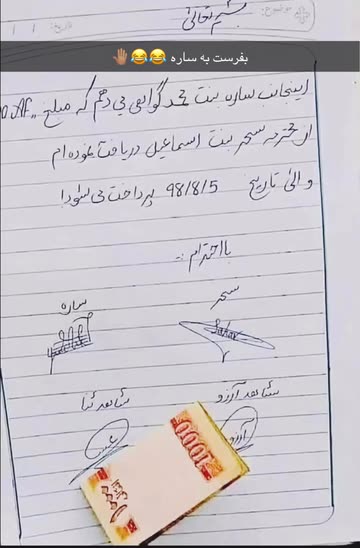 بسم تعالی
موضوع:
تاریخ: / /
بفرست به ساره 😂😂🤚🏽
اینجانب ساره بنت محمد گواهی می دهم که مبلغ
از محترمه سحر بنت اسماعیل دریافت نموده ام
و الی تاریخ 98/8/5 پرداخت می شود!
با احترام
سحر
ساره
Sahar
شاهد آرزو
شاهد ثنا
آرزو
1000